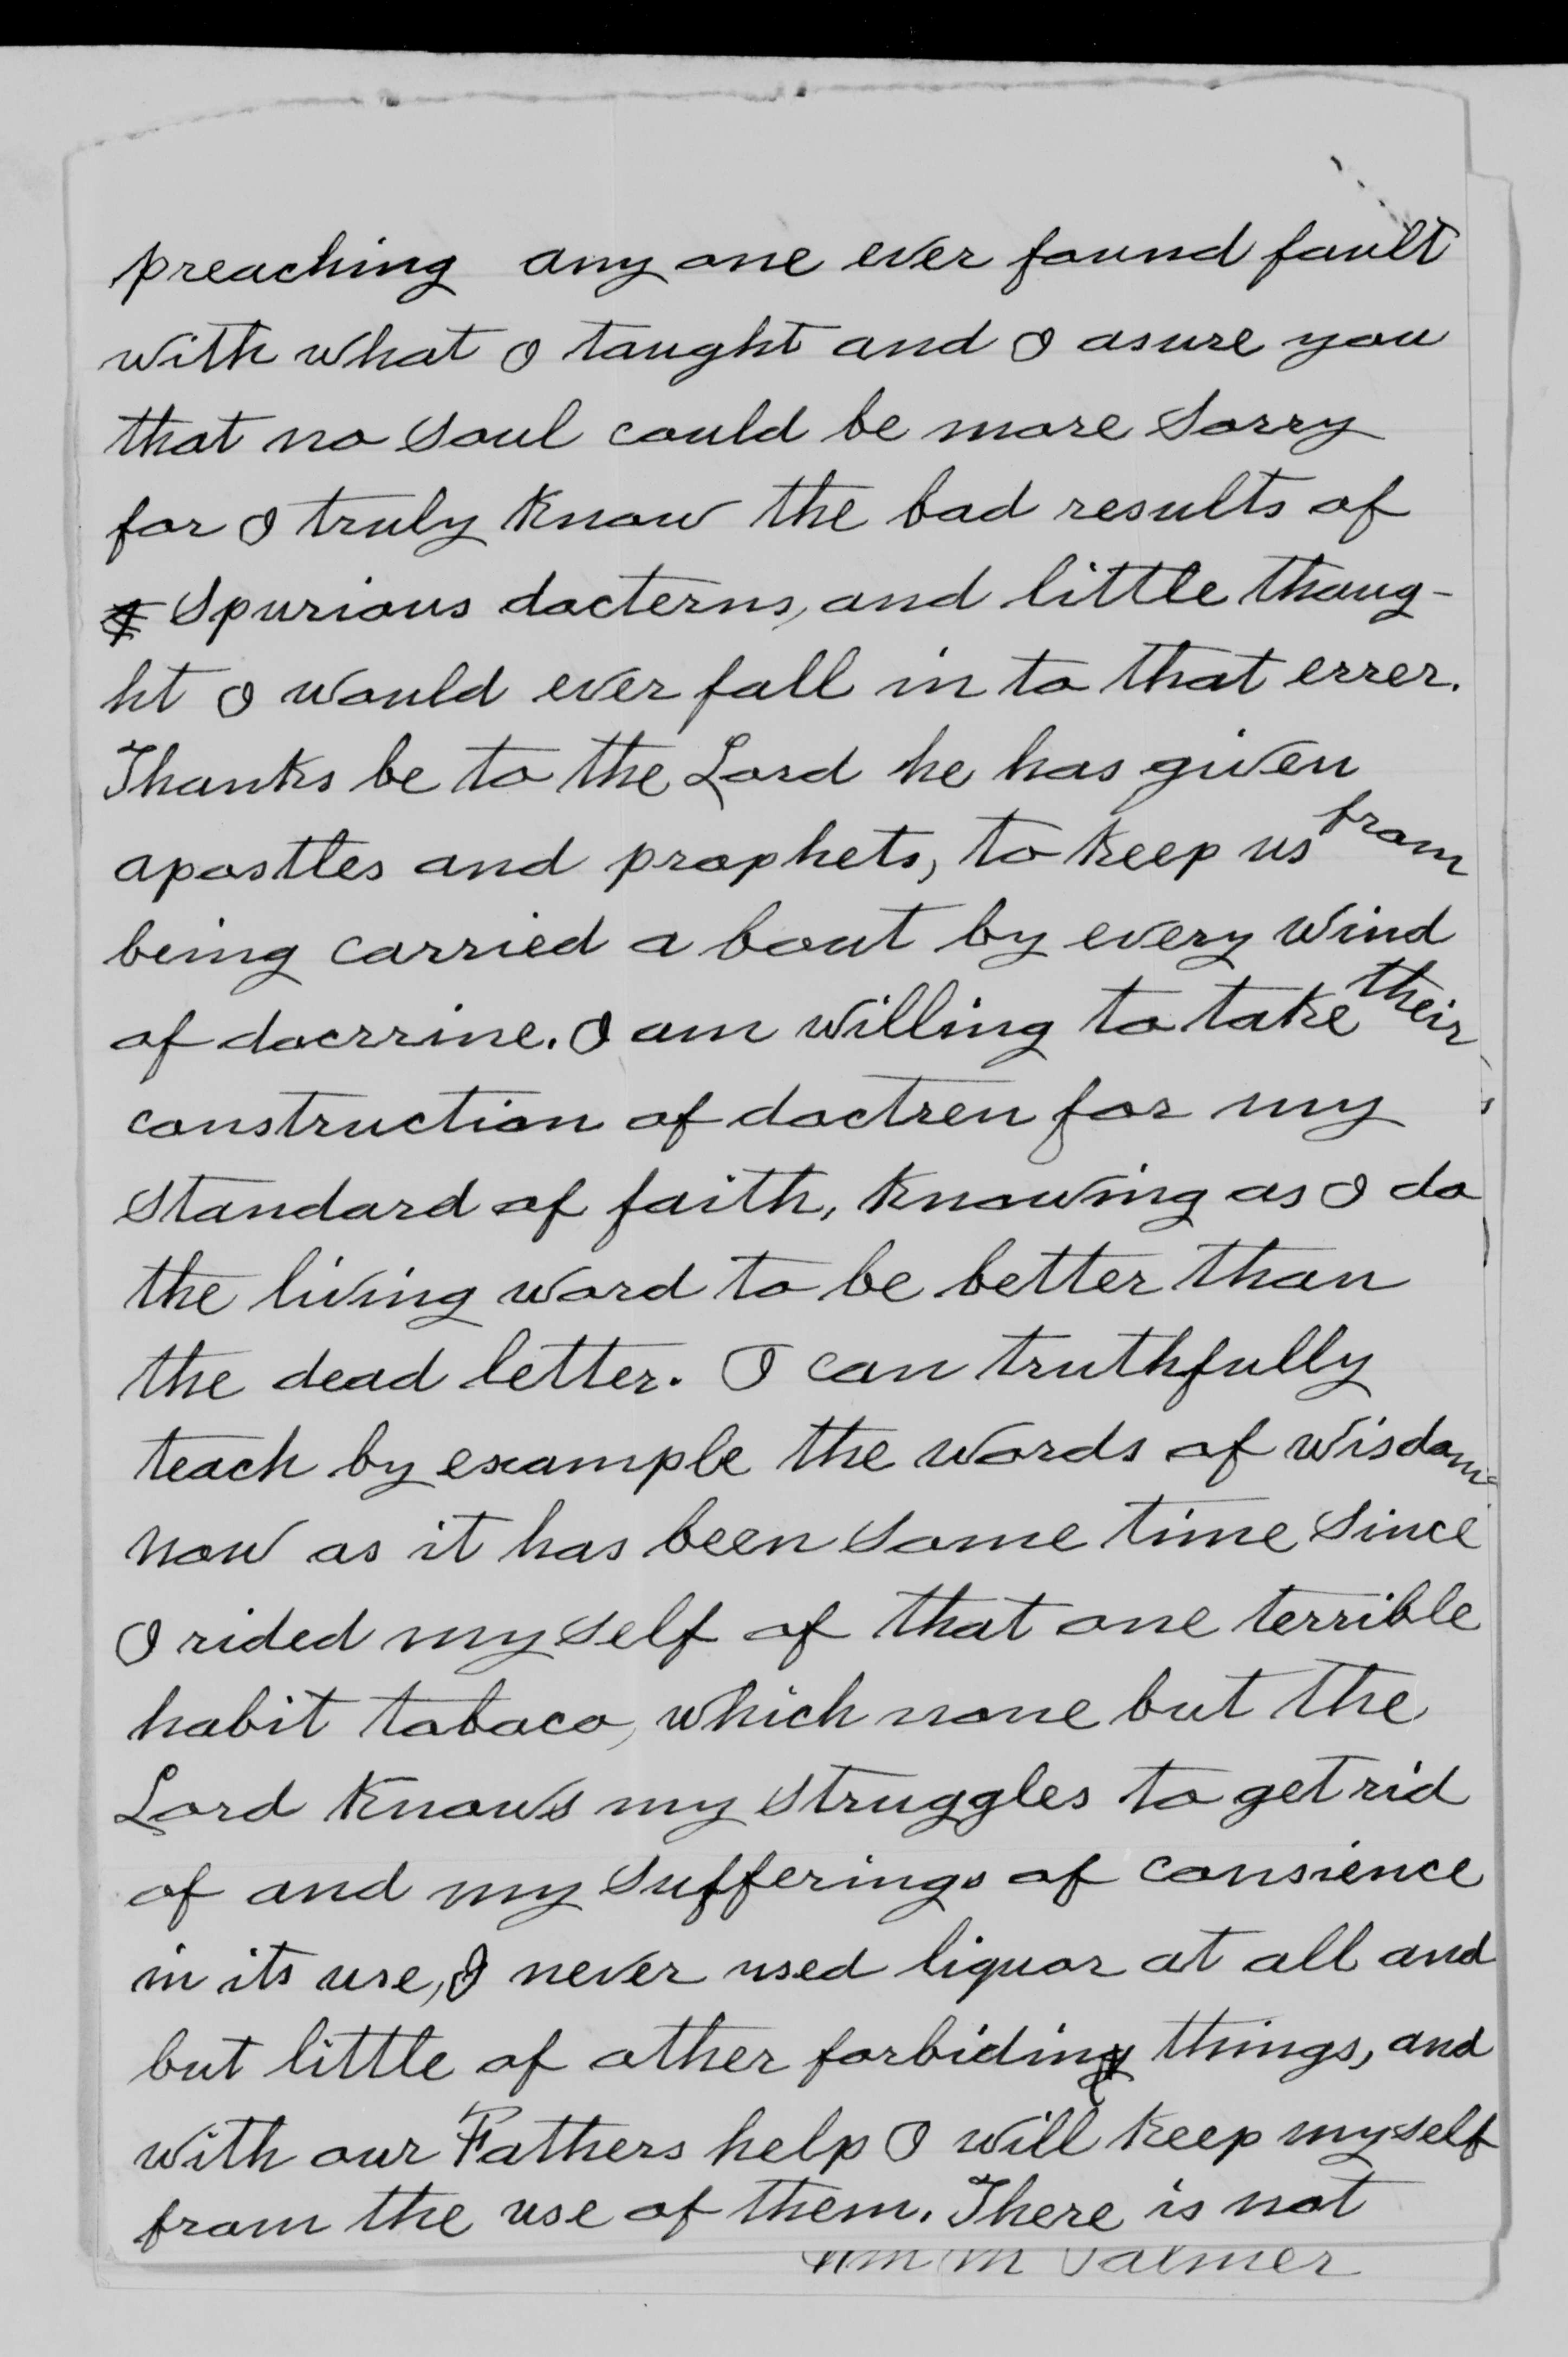 preaching any one ever found fault
with what I taught and I asure you
that no soul could be more sorry
for I truly know the bad results of
spurious docterns, and little thoug-
ht I would ever fall in to that errer.
Thanks be to the Lord he has given
apostles and prophets, to keep us from
being carried a bout by every wind
of docrrine. I am willing to take their
construction of doctren for my
standard of faith, knowing as I do
the living word to be better than
the dead letter. I can truthfully
teach by example the words of wisdom
now as it has been some time since
I rided my self of that one terrible
habit tobaco, which none but the
Lord knows my struggles to get rid
of and my sufferings of consience
in its use, I never used liquor at all and
but little of other forbiding things, and
with our Fathers help I will keep myself
from the use of them. There is not
Wm M Palmer